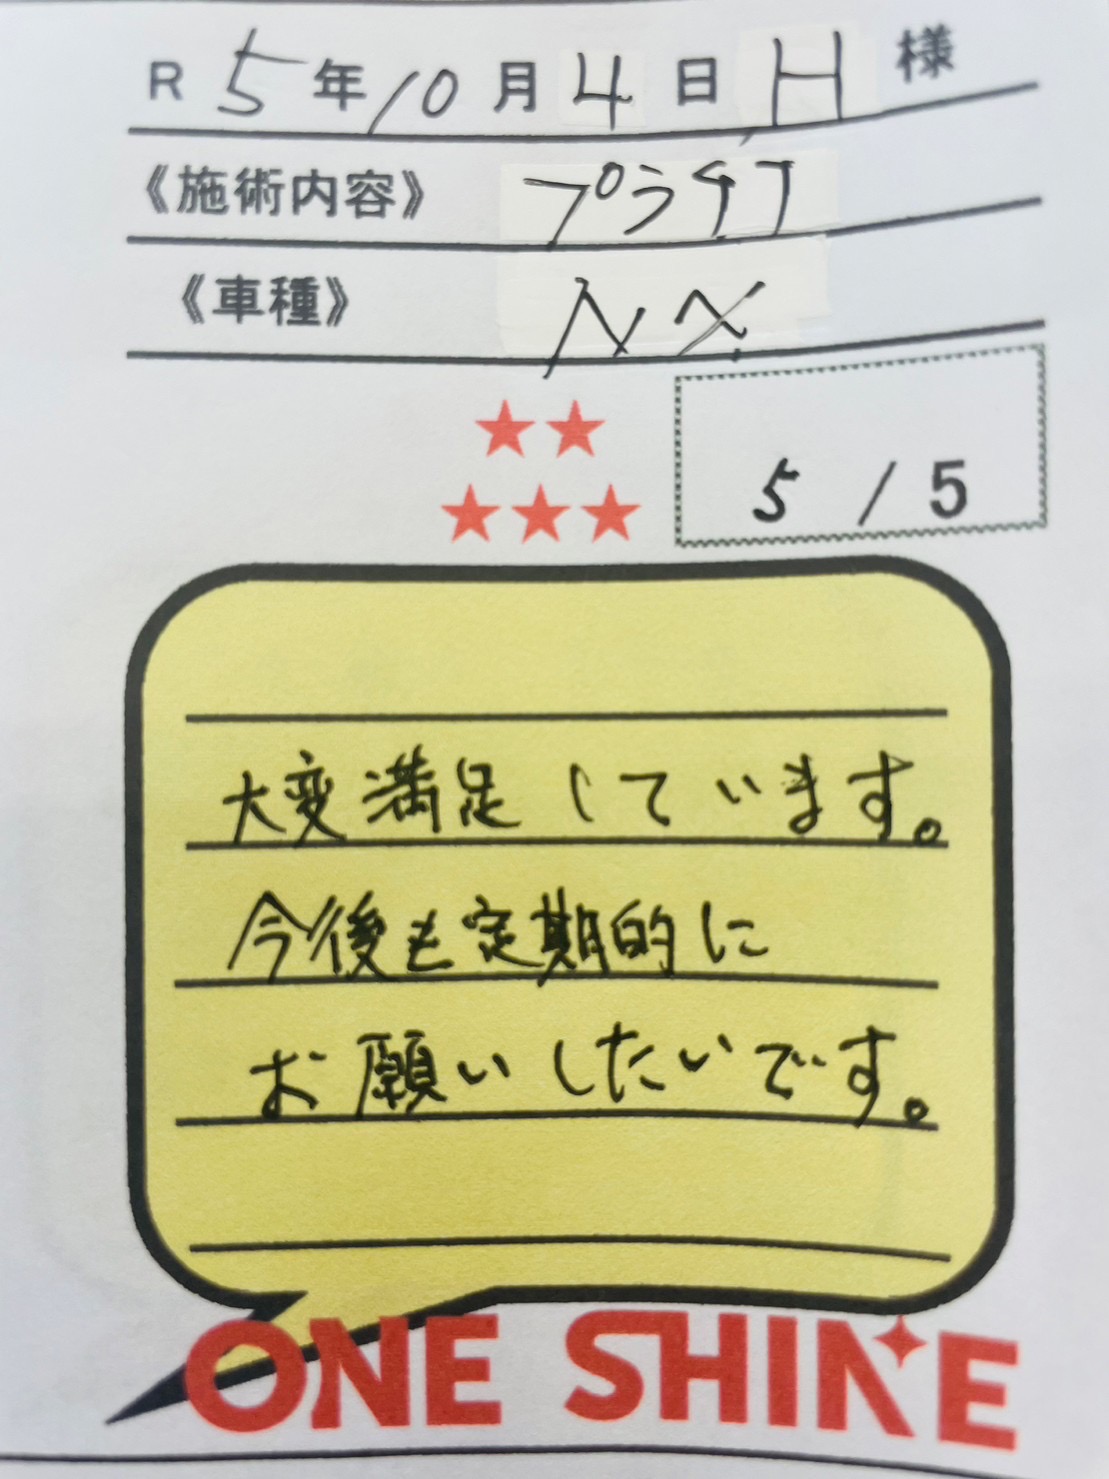 R 5年10月4日 H 様
《施術内容》 プラチナ
《車種》 NX
★★
★★★
5/5
大変満足しています。
今後も定期的に
お願いしたいです。
ONE SHINE